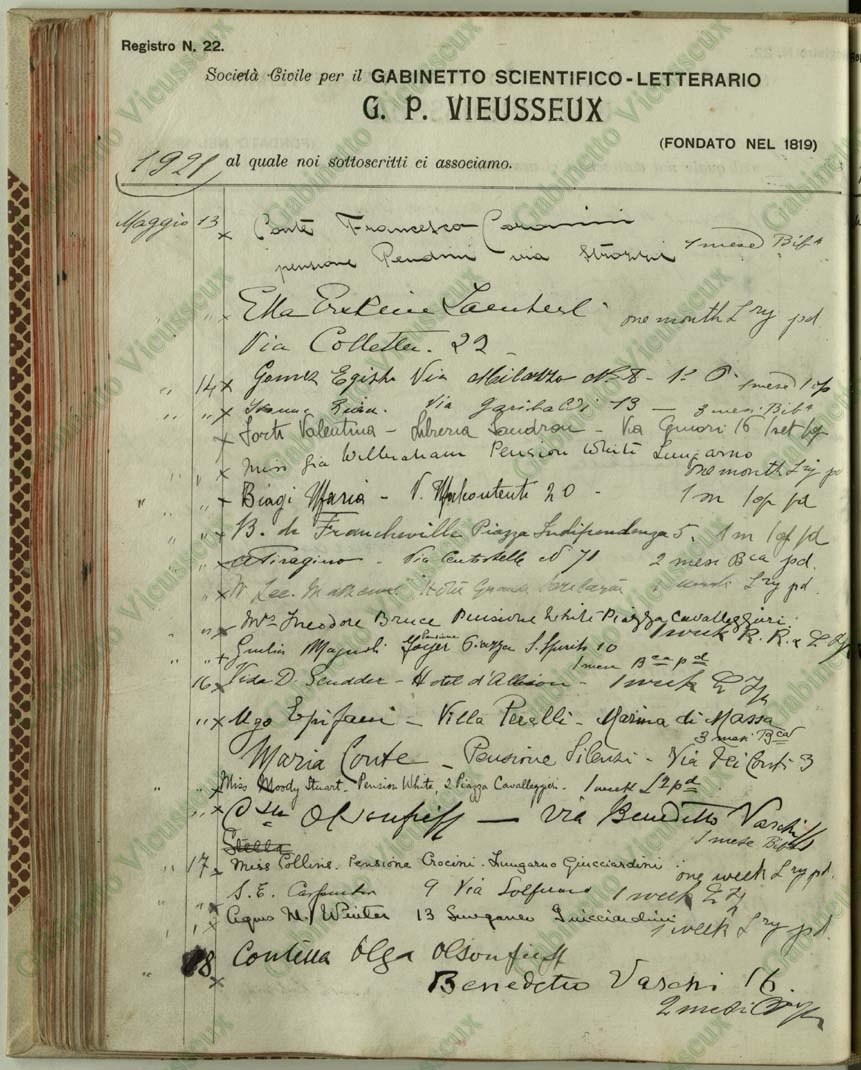 Registro N. 22.
Società Civile per il GABINETTO SCIENTIFICO-LETTERARIO
G. P. VIEUSSEUX
(FONDATO NEL 1819)
1921 al quale noi sottoscritti ci associamo.
Maggio 13 x Conte Francesco
pensione Pendini via Strozzi 1 mese Bibª
" x Ella Erskine one month Lry pd
Via Colletta. 22
" 14 x Gomez Egisto Via Milazzo Nº 8 - 1º P. 1 mese
" " x Via Garibaldi 13 — 3 mesi Bibª
x Forti Valentina - Libreria Sandron - Via 16
x Miss Wilbraham Pension White Lungarno
one month Lry pd
" " x Biagi Maria - V. Malcontenti 20 - 1 m pd
" x B. de Francheville Piazza Indipendenza 5. 1 m pd
" x Via Centostelle N 71 2 mesi Bca pd.
" x W. Lee Hotel Grande Lry pd.
" x Mrs Theodore Bruce Pensione White Piazza Cavalleggieri.
1 week R. R. &
" " + Giulio Magnoli Pensione Piazza S. Spirito 10
1 mese Bca pd
16 x Vida D. Scudder - Hotel d'Albion - 1 week
" x Ugo Epifani - Villa Perelli - Marina di Massa
3 mesi Bca
Maria Conte - Pensione Silenzi - Via dei Conti 3
" " x Miss Moody Stuart - Pension White, 2 Piazza Cavalleggeri - 1 week pd
" x Olsoufieff — via Benedetto Varchi
1 mese Bibª
Stella
" 17 x Miss Collins. Pensione Crocini. Lungarno Guicciardini one week Lry pd.
" x S. E. Carpenter 9 Via Solferino 1 week
" x Agnes M. Winter 13 Lungarno Guicciardini
1 week Lry pd.
" 18 x Contessa Olga Olsoufieff
Benedetto Varchi 16.
2 mesi
Gabinetto Vieusseux